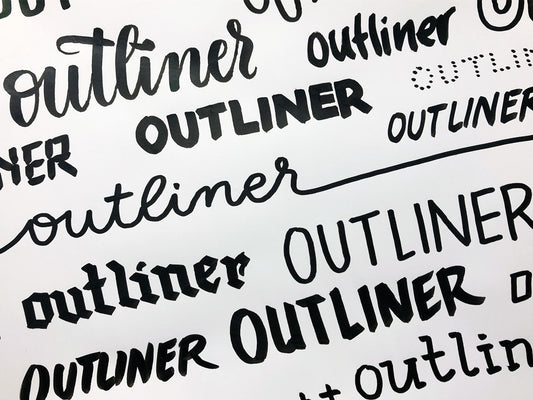 outliner outliner
OUTLINER OUTLIN
NER OUTLINER
outliner
outliner OUTLINER
OUTLINER OUTLINER
outlin